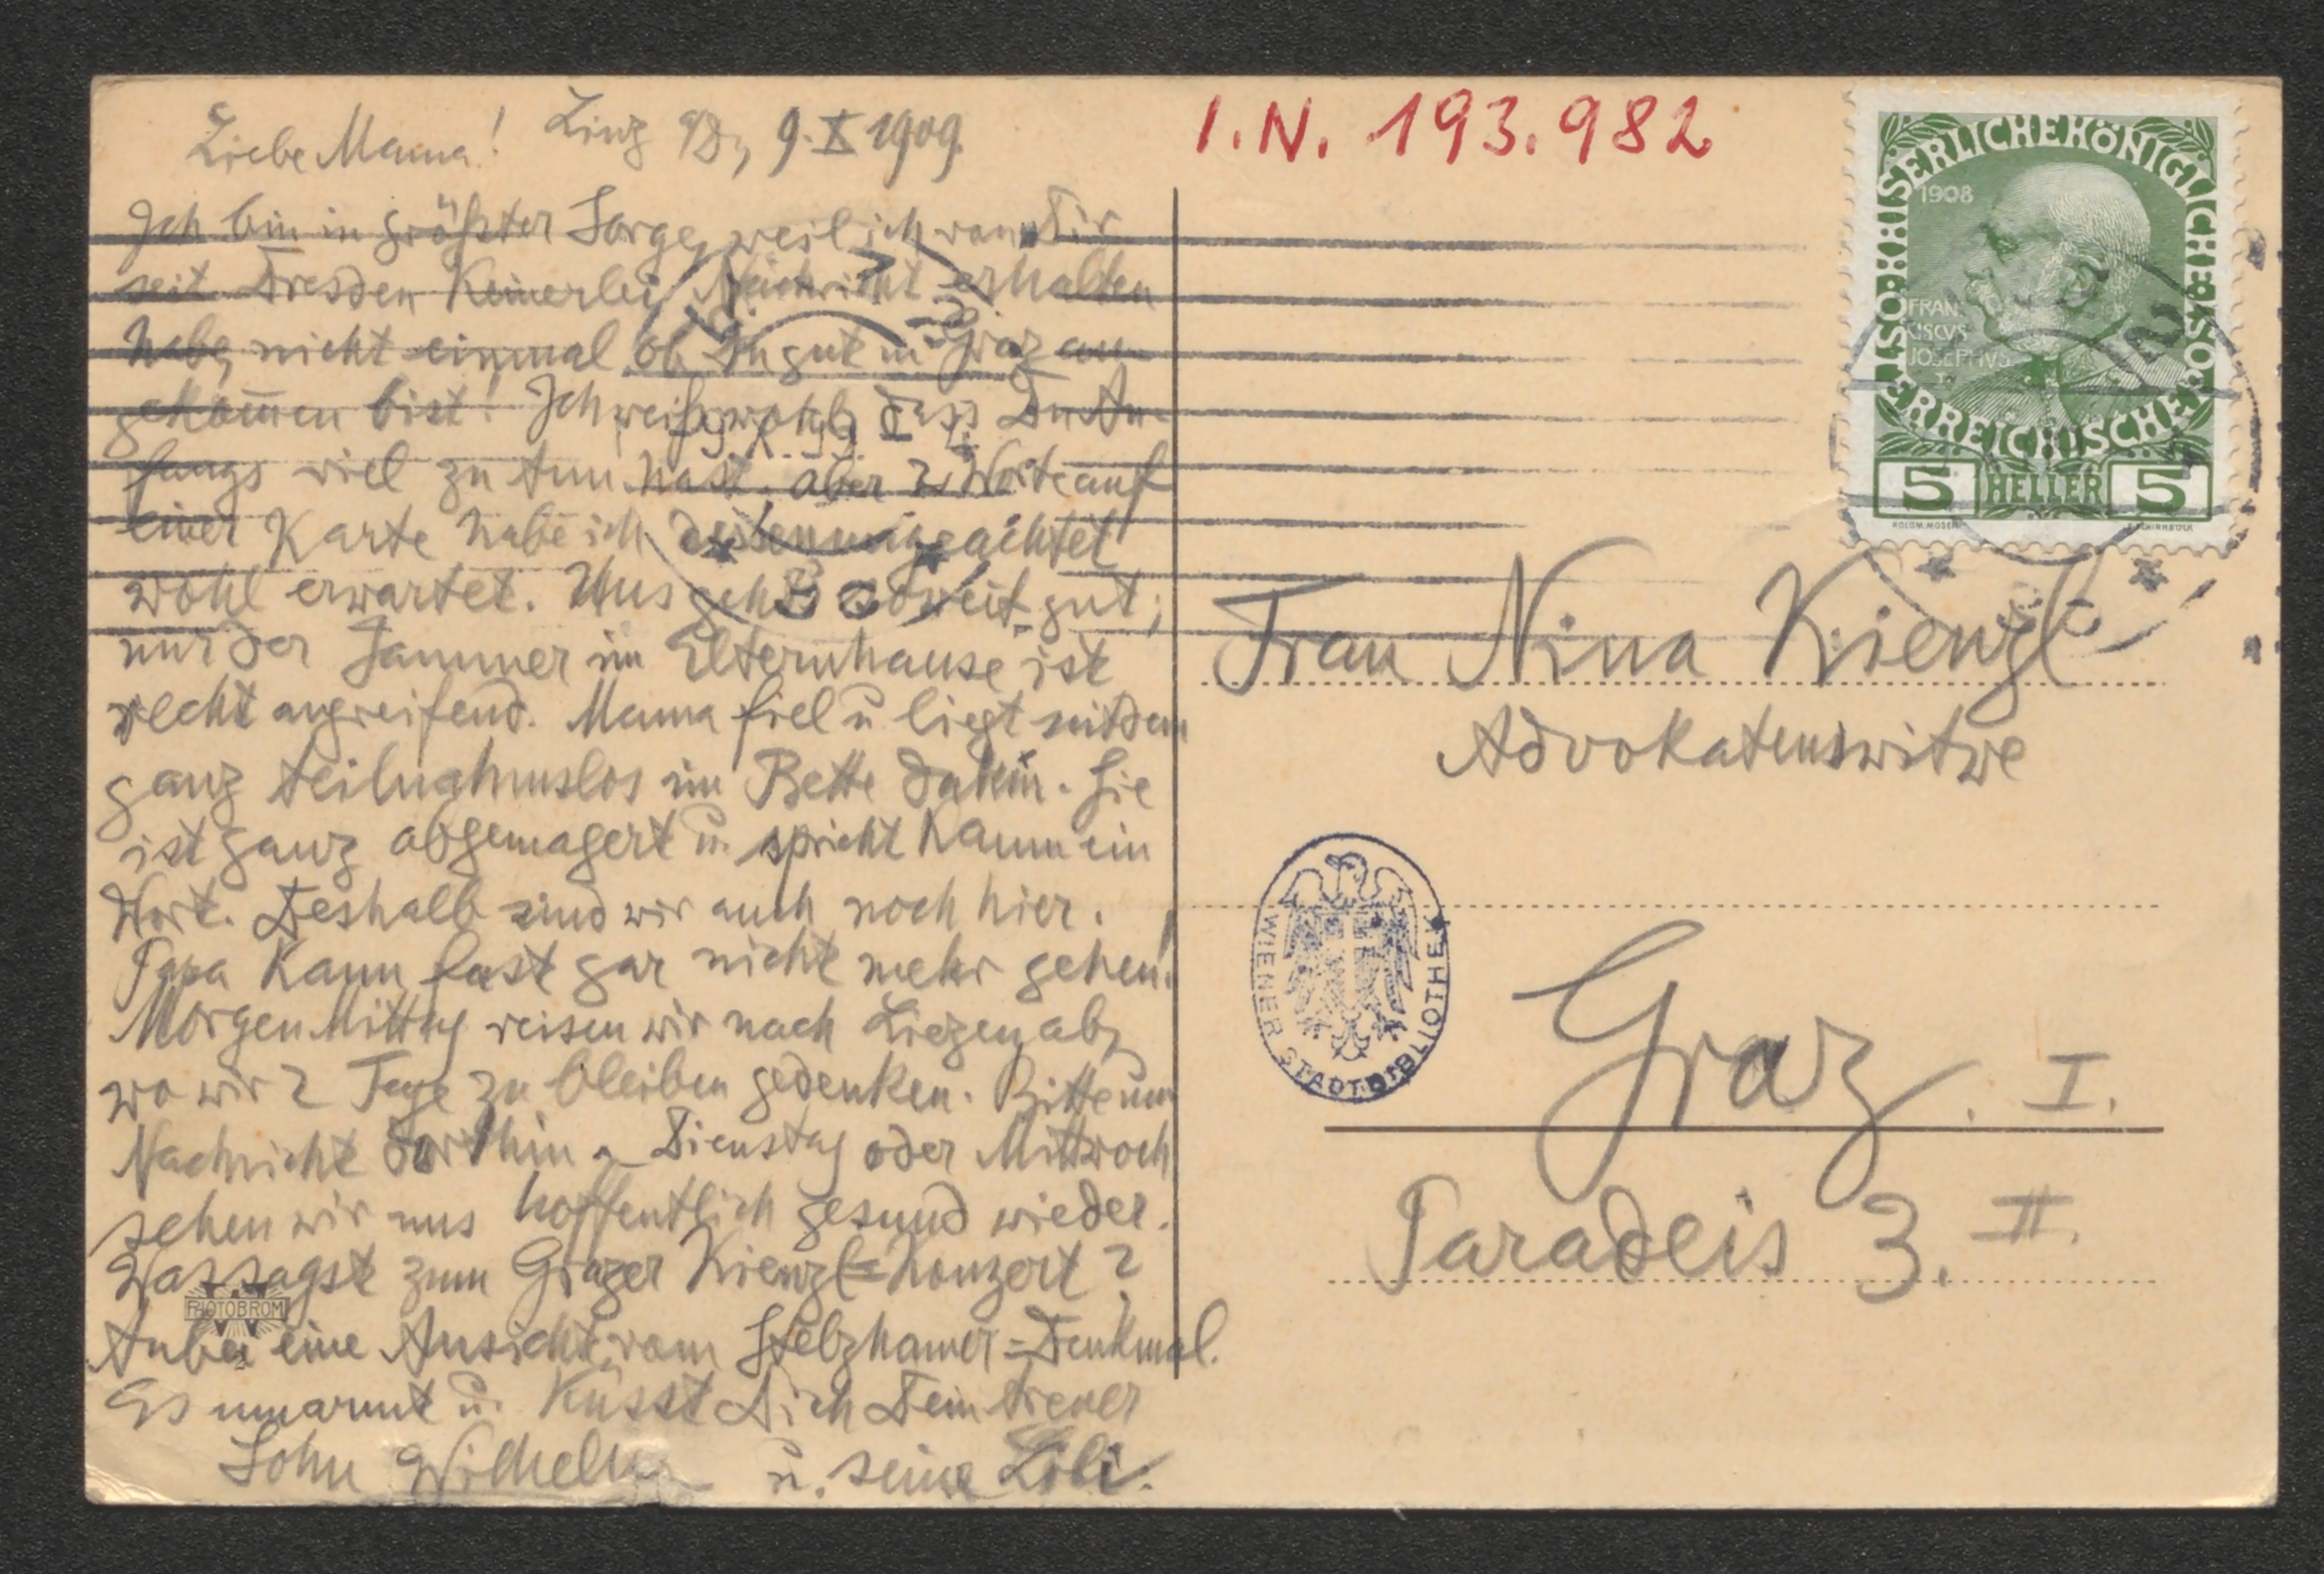 Liebe Mama! Linz a/D, 9. X 1909.
Ich bin in größter Sorge, weil ich von Dir
seit Dresden keinerlei Nachricht erhalten
habe, nicht einmal ob Du gut in Graz an-
gekom̄en bist! Ich weiß wohl, dass Du An-
fangs viel zu tun hast, aber 2 Worte auf
einer Karte habe ich dessenungeachtet
wohl erwartet. Uns geht es soweit gut;
nur der Jammer im Elternhause ist
recht angreifend. Mama fiel u. liegt seitdem
ganz teilnahmslos im Bette dahin. Sie
ist ganz abgemagert u. spricht kaum ein
Wort. Deshalb sind wir auch noch hier.
Papa kann fast gar nicht mehr gehen!
Morgen Mittag reisen wir nach Liezen ab,
wo wir 2 Tage zu bleiben gedenken. Bitte um
Nachricht dorthin. Dienstag oder Mittwoch
sehen wir uns hoffentlich gesund wieder.
Was sagst zum Grazer Kienzl=Konzert?
Anbei eine Ansicht vom Stelzhamer=Denkmal.
Es umarmt u. küsst Dich Dein treuer
Sohn Wilhelm u. seine Lili.
PHOTOBROM
I.N. 193.982
KAISERLICHE KÖNIGLICHE ÖSTERREICHISCHE POST
1908
FRAN
CISCVS
JOSEPHVS
I
5 HELLER 5
KOLOM. MOSER
F. SCHIRNBÖCK
Frau Nina Kienzl
Advokatenswitwe
WIENER STADT-BIBLIOTHEK
Graz. I.
Paradeis 3. II.